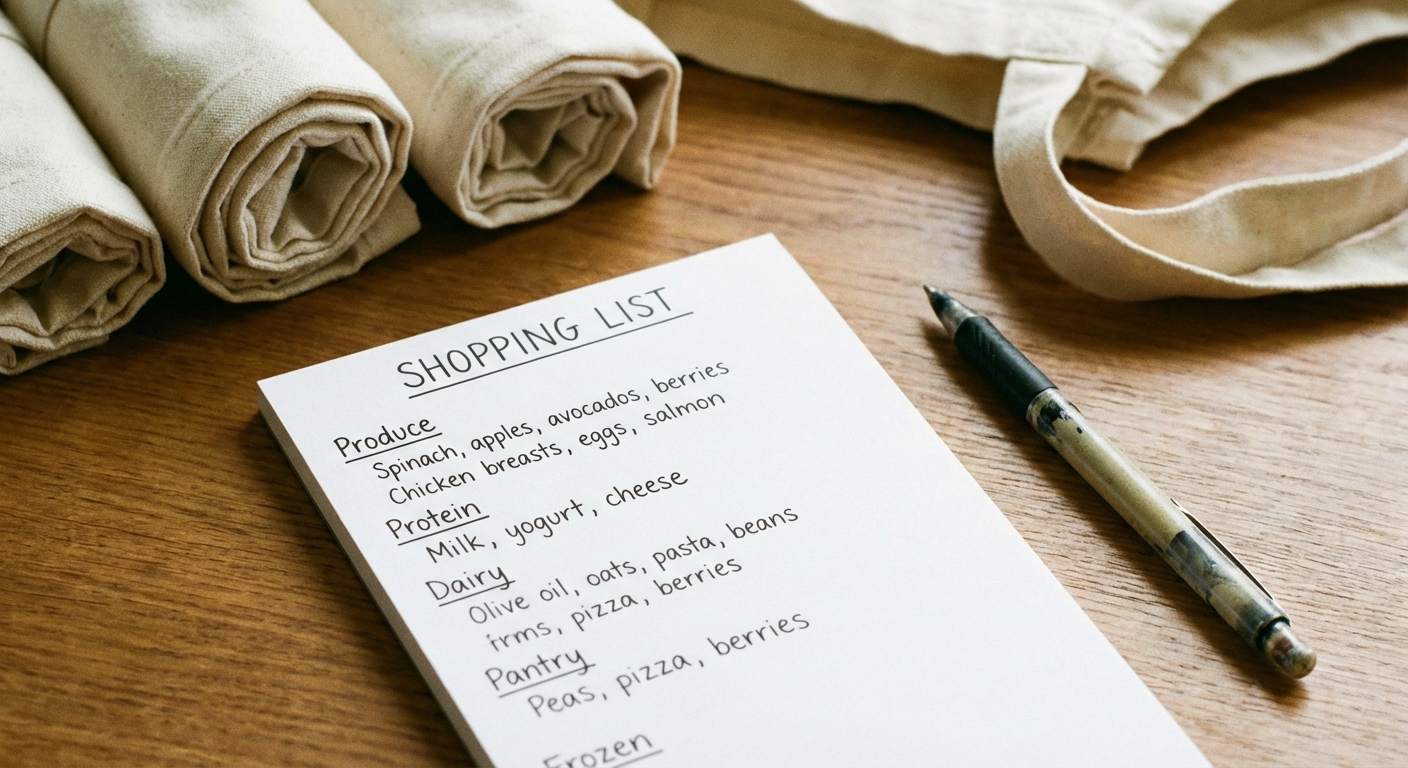 SHOPPING LIST
Produce
Spinach, apples, avocados, berries
Chicken breasts, eggs, salmon
Protein
Milk, yogurt, cheese
Dairy
Olive oil, oats, pasta, beans
pizza, berries
Pantry
Peas, pizza, berries
Frozen